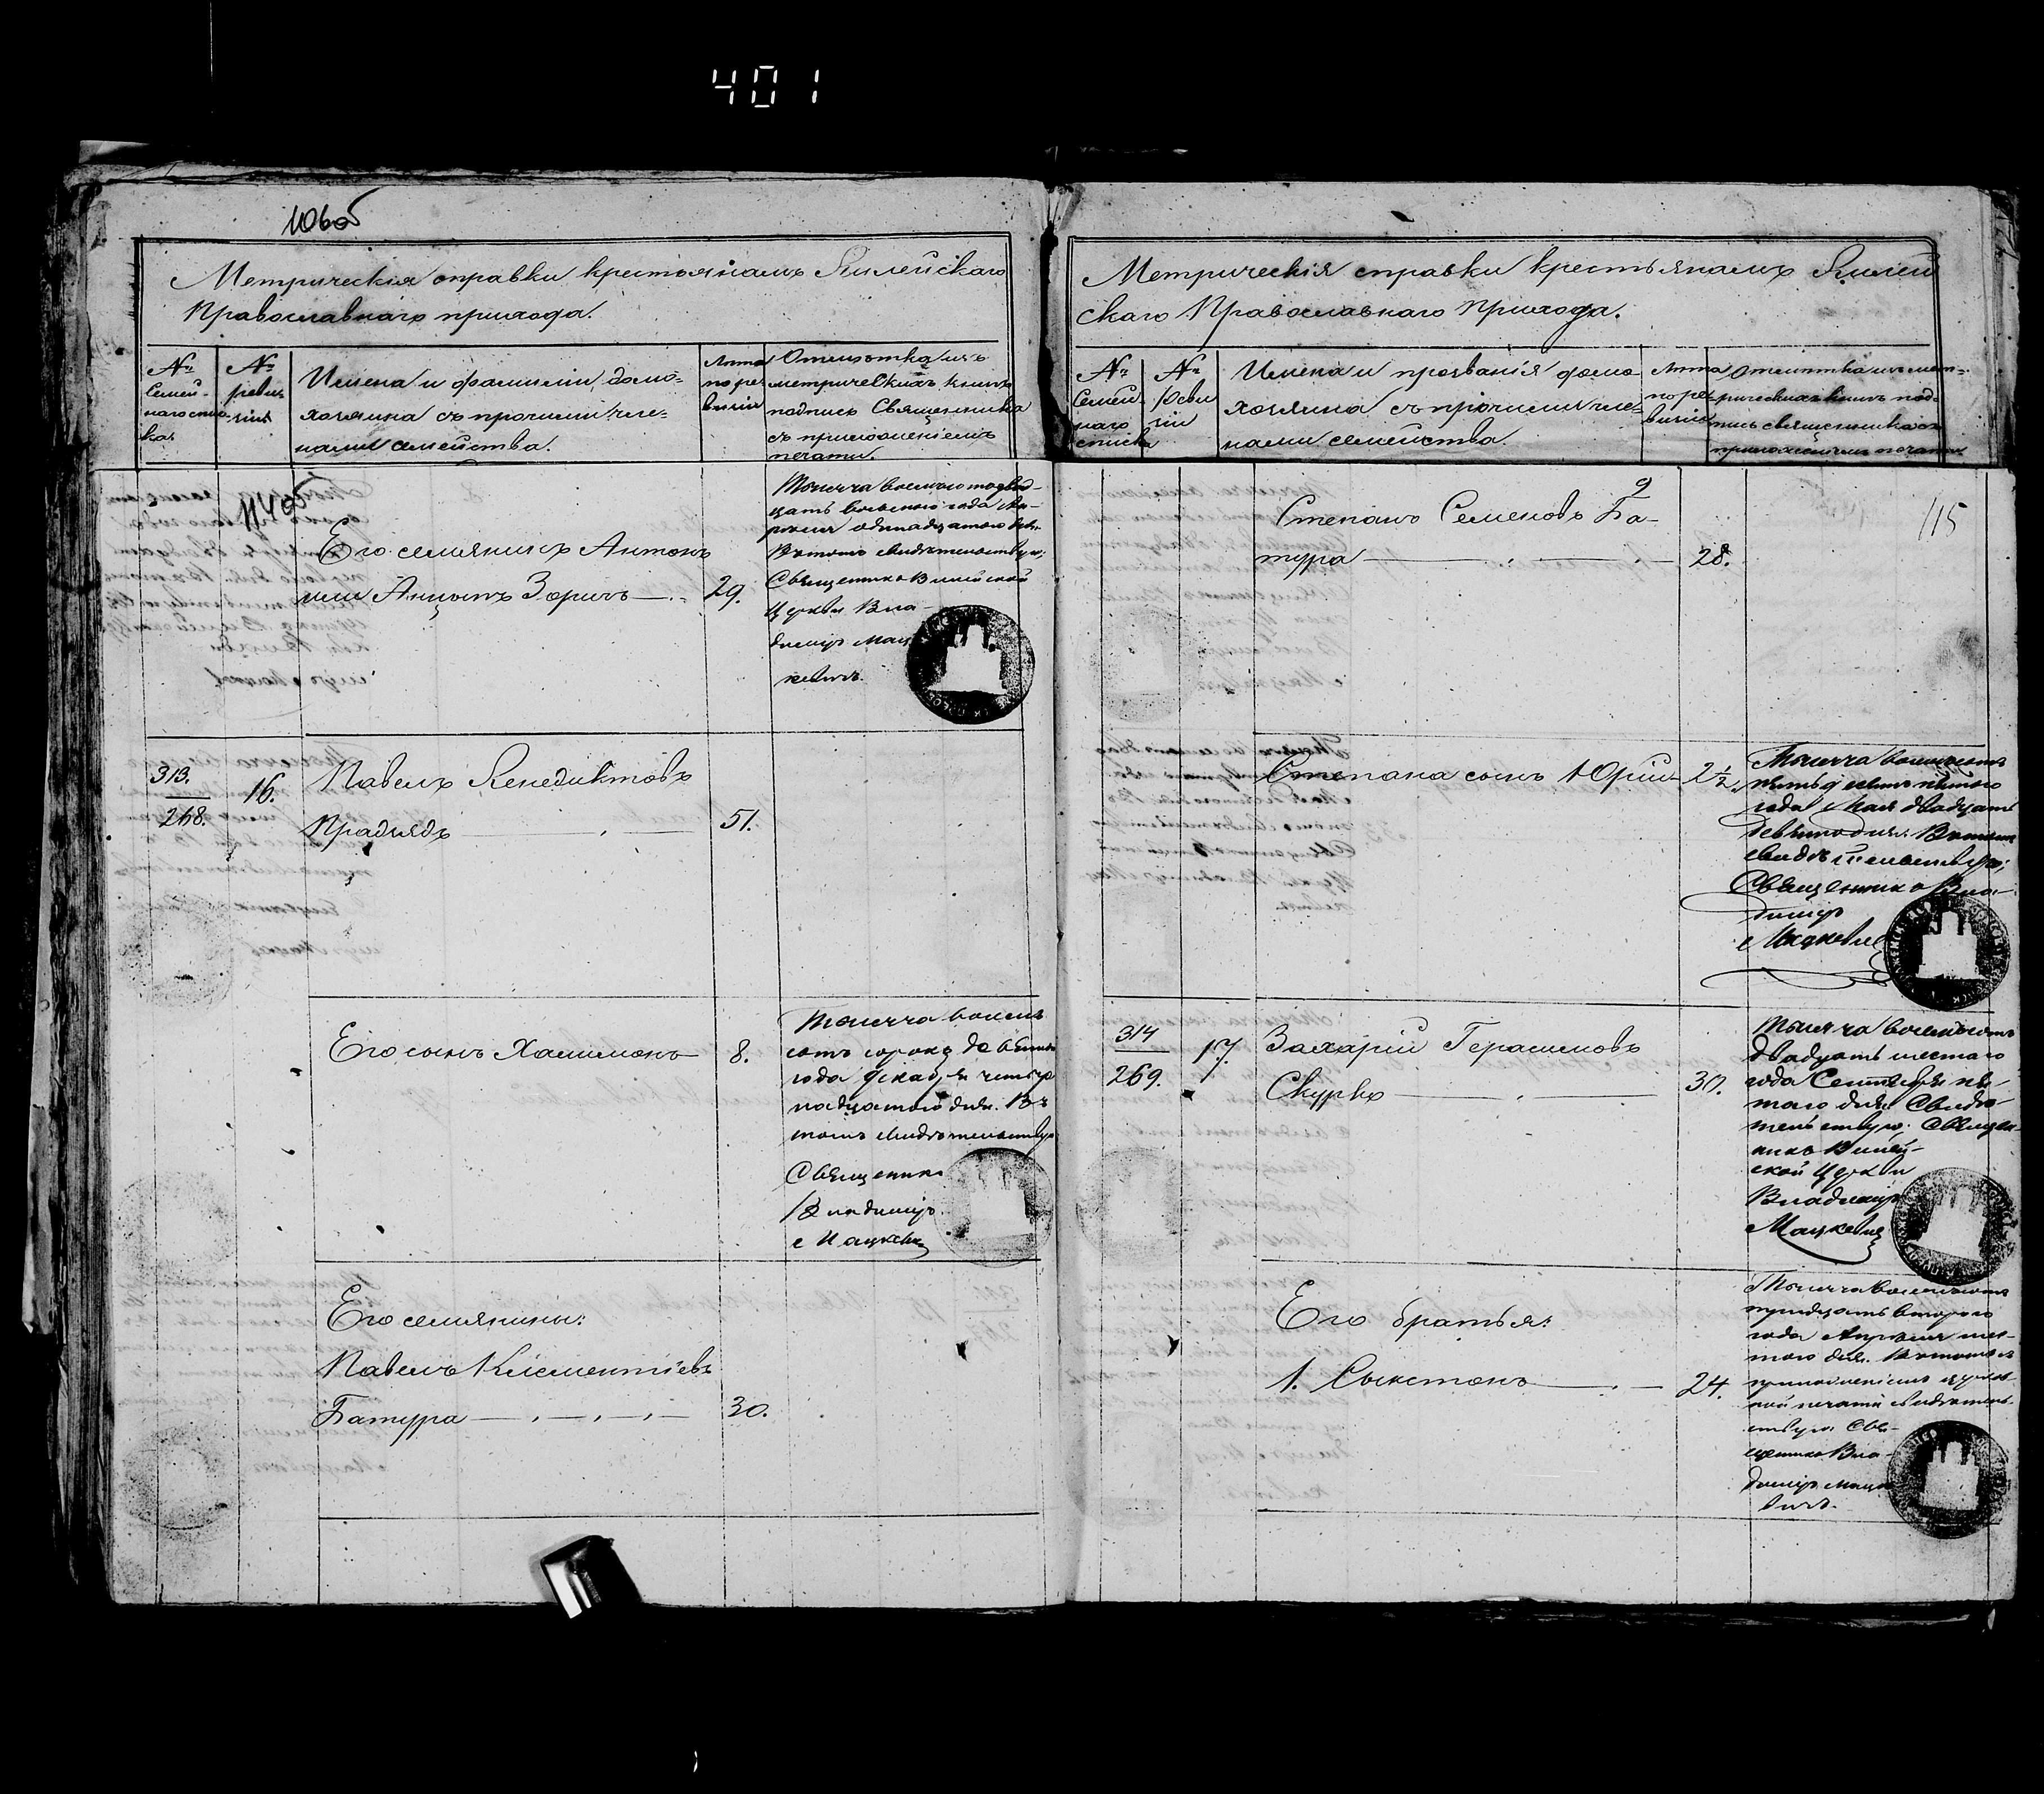 401
106об
Метрическія справки крестьянамъ Вилейскаго
Православнаго прихода.
№
Семей-
наго спис-
ка.
№
реви-
зіи
Имена и фамиліи домо-
хозяина съ прочими чле-
нами семейства.
Лѣта
по ре-
визіи
Отмѣтка изъ
метрическихъ книгъ
подпись Священника
съ приложеніемъ
печати.
114об
Его семянинъ Антонъ
или Анцыпъ Зоричъ 29.
Тысяча восемьсотъ двад-
цать восьмого года Ап-
рѣля одинадцатаго дня.
Въ томъ свидѣтельствую:
Священникъ Вилейской
Церкви Вла-
диміръ Мац
кевичъ.
313.
268.
16.
Павелъ Бенедиктовъ
Прадзядъ 51.
Его сынъ Халимонъ 8.
Тысяча восемь
сотъ сорокъ девятаго
года Декабря четыр
надцатаго дня. Въ
томъ свидѣтельствую
Священникъ
Владиміръ
Мацкевичъ
Его семянины:
Павелъ Клементіевъ
Батура 30.
Метрическія справки крестьянамъ Вилей
скаго Православнаго Прихода.
№
Семей
наго
списка
№
Реви
зіи
Имена и прозванія домо
хозяина съ прочими чле-
нами семейства.
Лѣта
по ре-
визіи
Отмѣтка изъ мет-
рическихъ книгъ под-
пись священника съ
приложеніемъ печати
115
Степанъ Семеновъ Ба-
тура 28.
Степана сынъ Юрій 2½
Тысяча восемьсотъ
пятьдесятъ пятаго
года Мая двадцать
девятаго дня. Въ томъ
свидѣтельствую;
Священникъ Вла-
диміръ
Мацкевичъ
314
269.
17.
Захарій Герасимовъ
Скурко 30.
Тысяча восемьсотъ
двадцать шестаго
года Сентября пя-
таго дня Свидѣ-
тельствую. Священ-
никъ Вилей-
ской Церкви
Владиміръ
Мацкевичъ
Его братья:
1. Сыкстонъ 24.
Тысяча восемьсотъ
тридцать втораго
года Апрѣля шес-
таго дня. Въ томъ съ
приложеніемъ церков-
ной печати свидѣтель-
ствую Свя-
щенникъ Вла-
диміръ Мацке
вичъ.